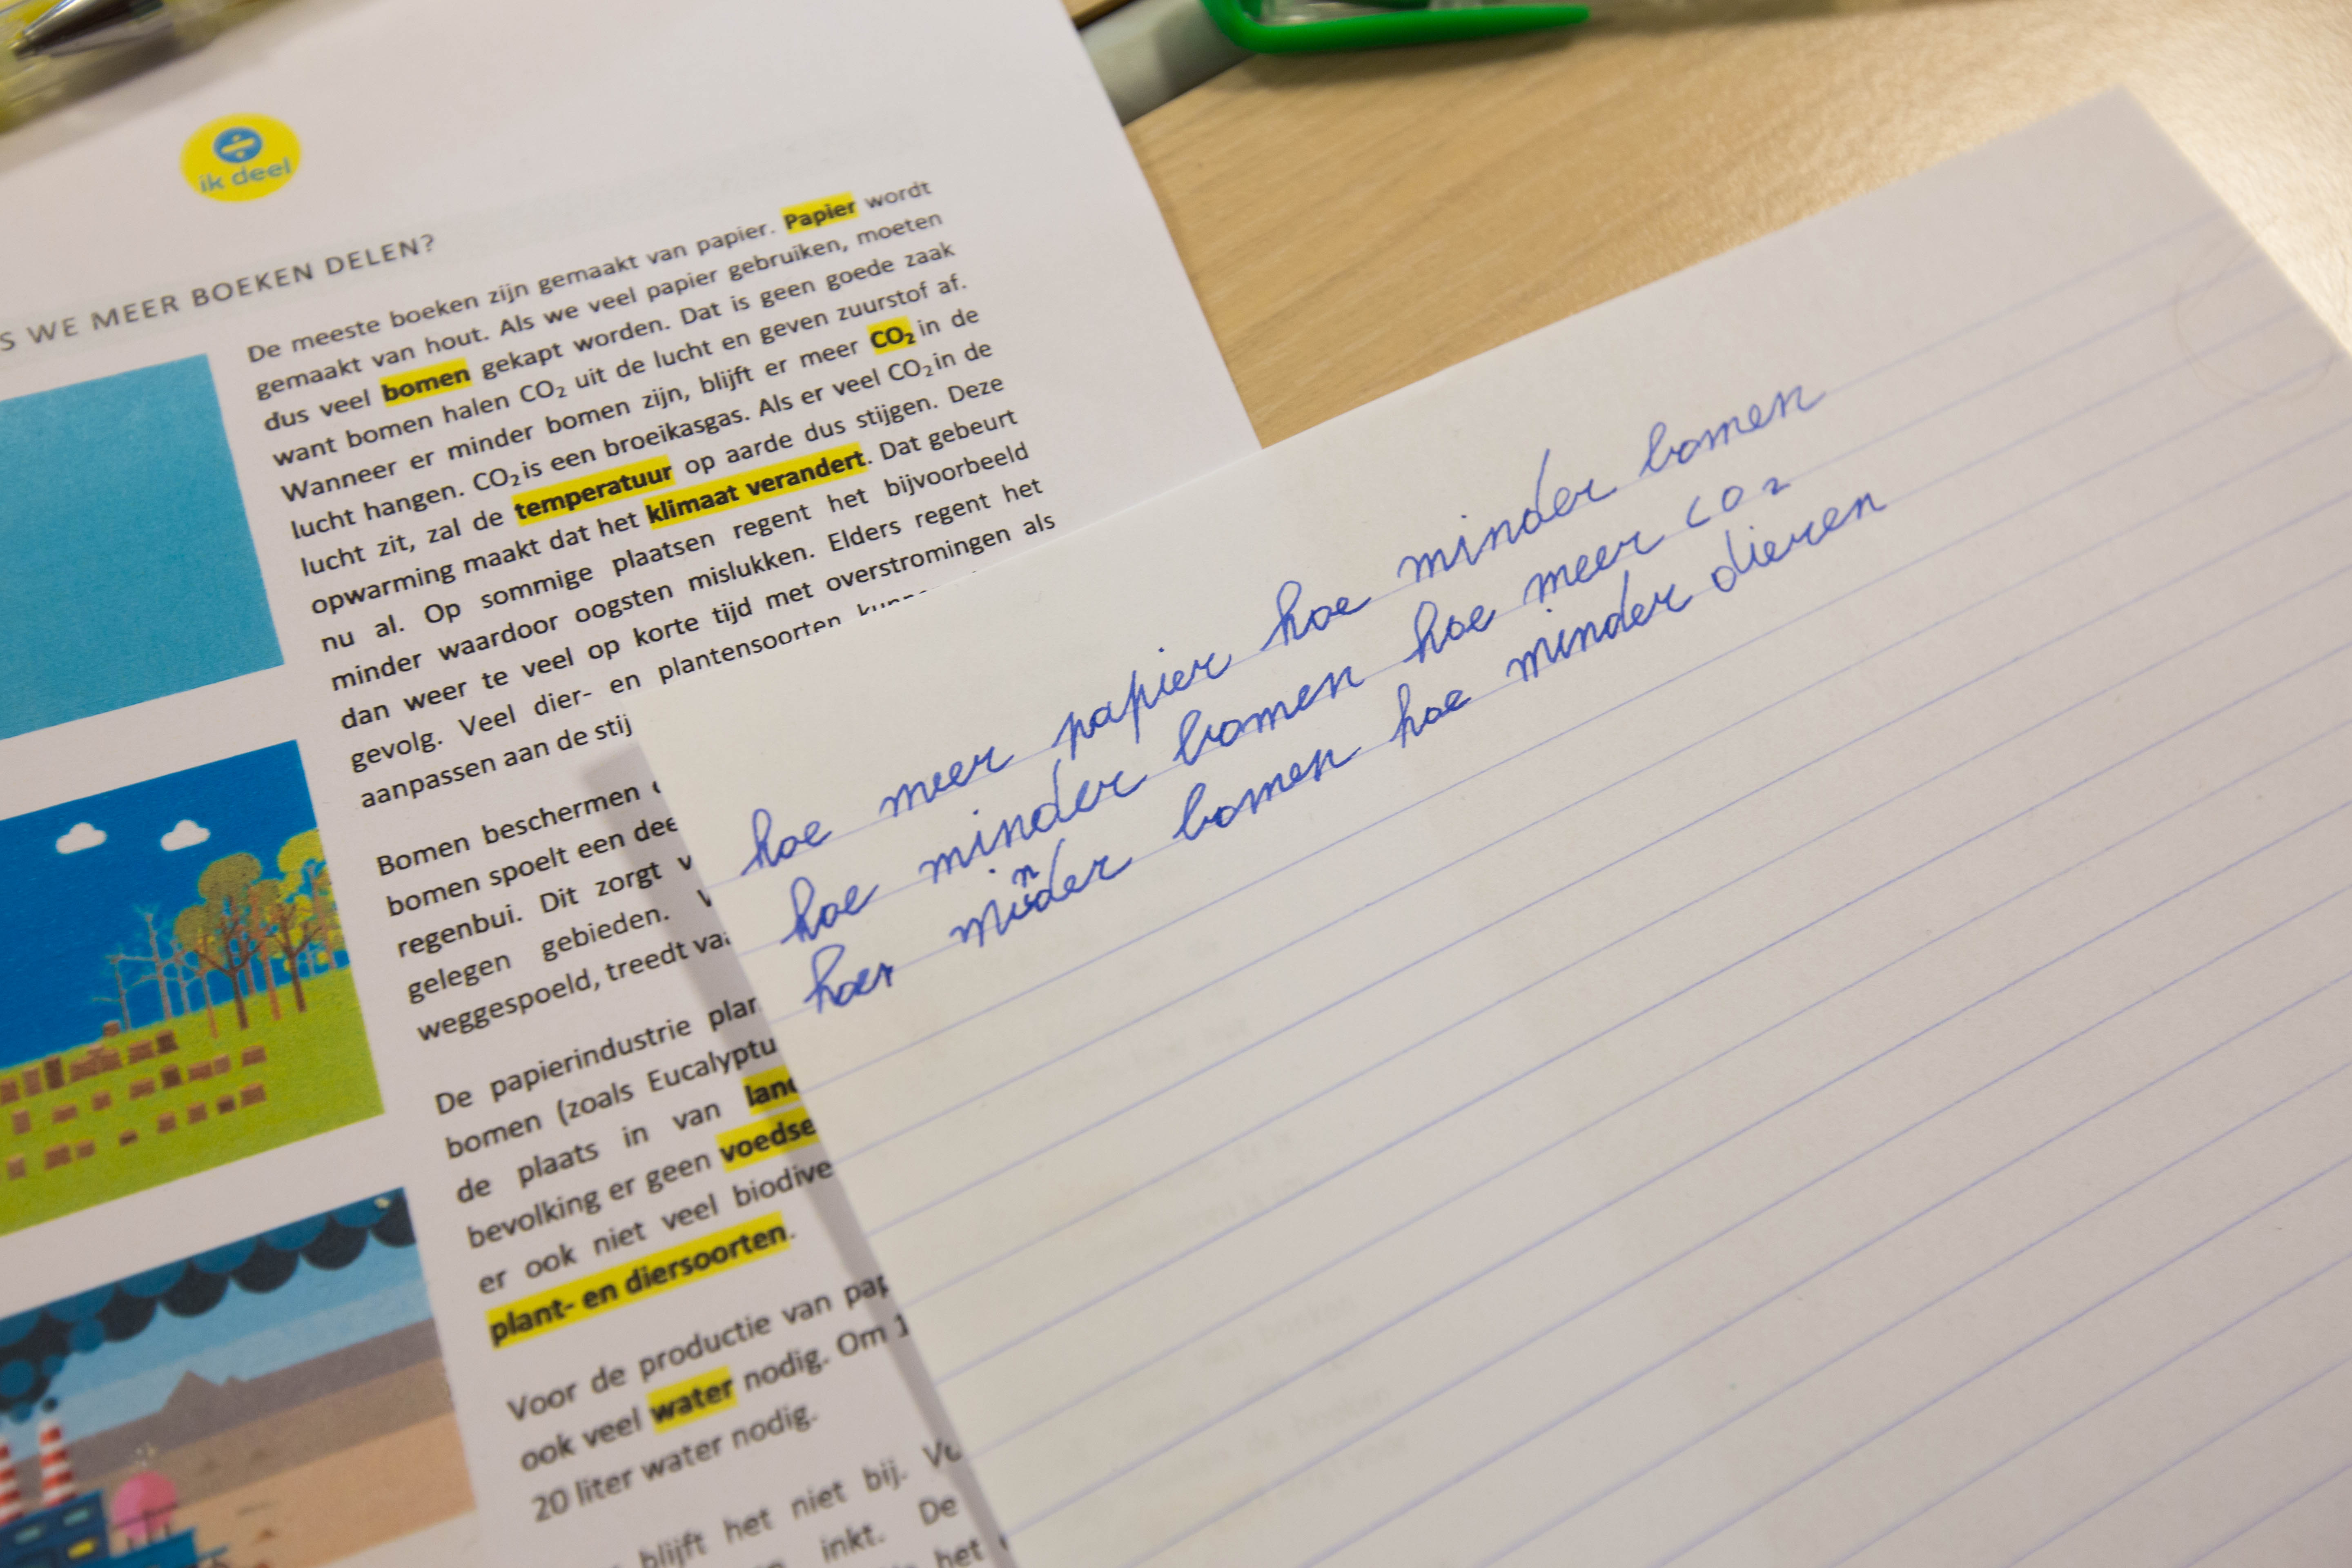 ik deel
WE MEER BOEKEN DELEN?
De meeste boeken zijn gemaakt van papier. Papier wordt
gemaakt van hout. Als we veel papier gebruiken, moeten
dus veel bomen gekapt worden. Dat is geen goede zaak
want bomen halen CO₂ uit de lucht en geven zuurstof af.
Wanneer er minder bomen zijn, blijft er meer CO₂ in de
lucht hangen. CO₂ is een broeikasgas. Als er veel CO₂ in de
lucht zit, zal de temperatuur op aarde dus stijgen. Deze
opwarming maakt dat het klimaat verandert. Dat gebeurt
nu al. Op sommige plaatsen regent het bijvoorbeeld
minder waardoor oogsten mislukken. Elders regent het
dan weer te veel op korte tijd met overstromingen als
gevolg. Veel dier- en plantensoorten
aanpassen aan de stij
Bomen beschermen
bomen spoelt een dee
regenbui. Dit zorgt v
gelegen gebieden.
weggespoeld, treedt vaa
De papierindustrie plan
bomen (zoals Eucalyptu
de plaats in van land
bevolking er geen voedse
er ook niet veel biodive
plant- en diersoorten.
Voor de productie van pap
ook veel water nodig. Om 1
20 liter water nodig.
blijft het niet bij. Vo
inkt. De
het
hoe meer papier hoe minder bomen
hoe minder bomen hoe meer CO₂
hoer minder bomen hoe minder dieren